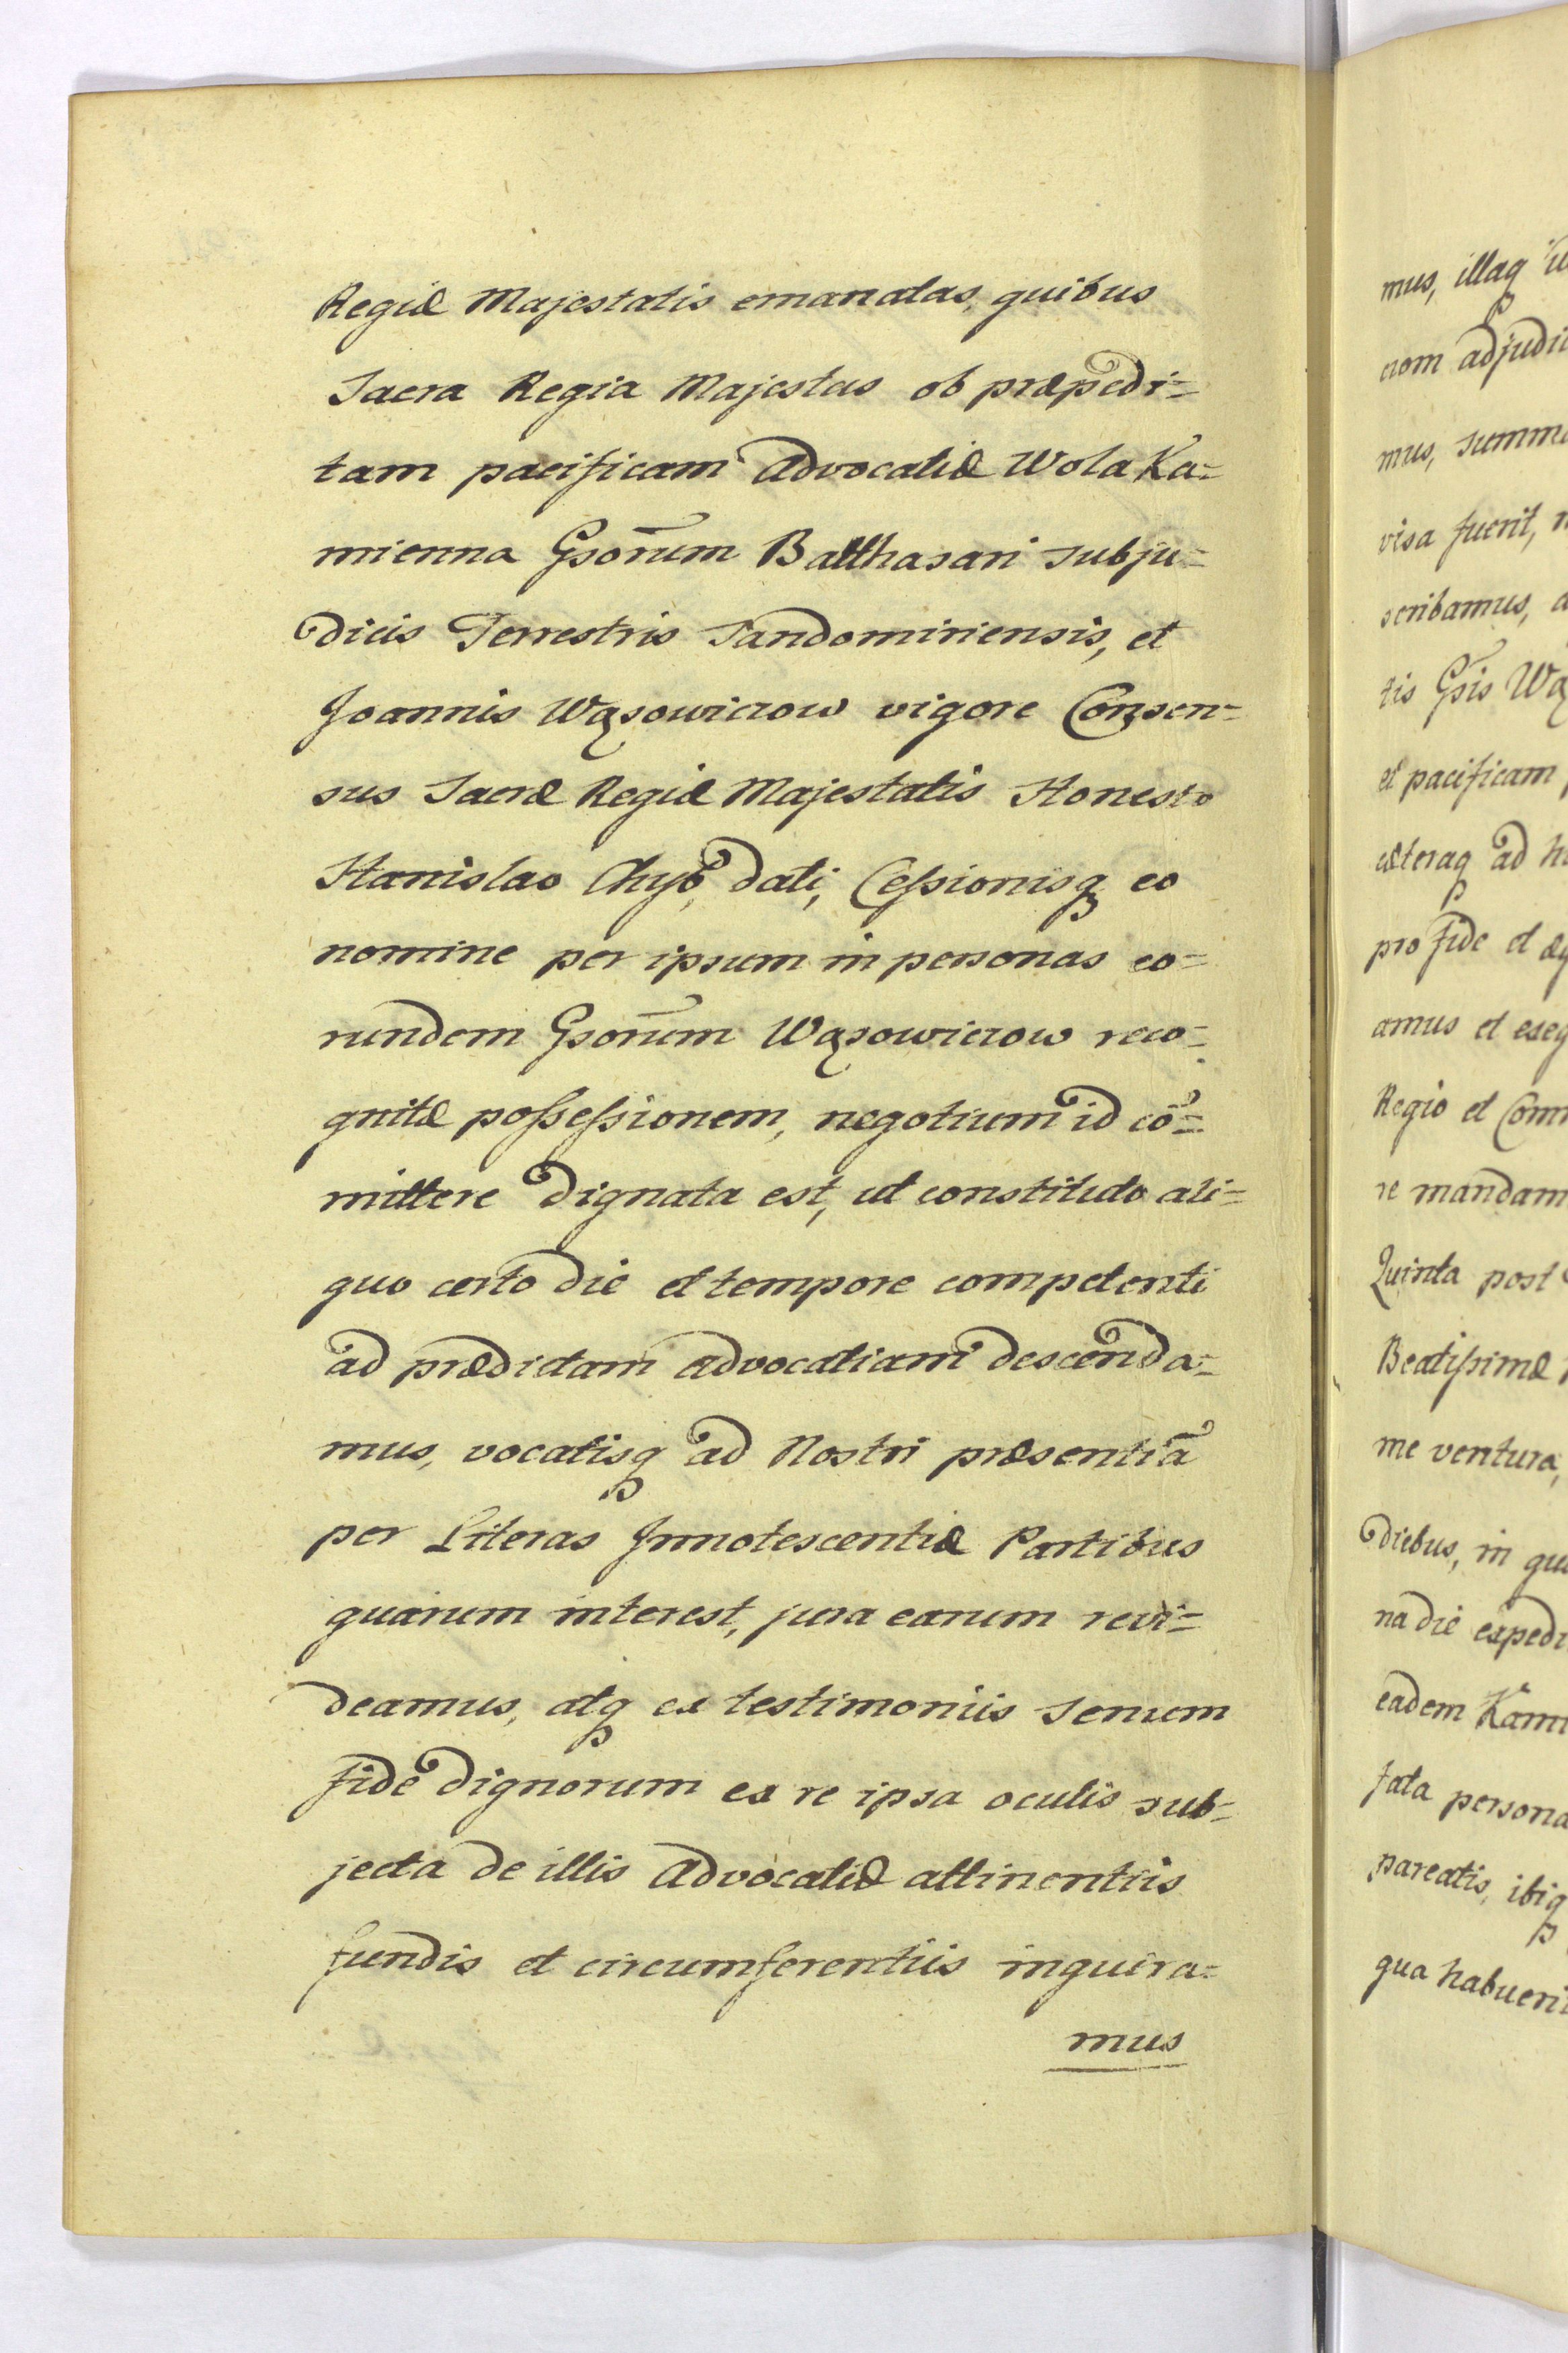 Regiæ Majestatis emanatas, quibus
Sacra Regia Majestas ob præpedi=
tam pacificam Advocatiæ Wola Ka=
mienna Gsorūm Balthasari Subju=
dicis Terrestris Sandomiriensis, et
Joannis Wąsowiczow vigore Consen=
sus Sacræ Regiæ Majestatis Honesto
Stanislao Chyb, dati, Cessionisq eo
nomine per ipsum in personas eo=
rundem Gsorūm Wąsowiczow reco=
gnitæ possessionem, negotium id cō=
mittere dignata est, ut constituto ali=
quo certo die et tempore competenti
ad prædictam advocatiam descenda=
mus, vocatisq ad Nostri præsentiā
per Literas Innotescentiæ Partibus
quarum interest, jura earum revi=
deamus, atq ex testimoniis Senum
fide dignorum ex re ipsa oculis sub=
jecta de illis Advocatiæ attinentiis
fundis et circumferentiis inquira=
mus
mus, illaq
nom
mus, summa
visa fuerit,
scribamus,
tis Gsis
et pacificam
cæteraq ad
pro fide et
amus et
Regio et
re mandam
Quinta post
Beatissimæ
me ventura,
diebus, in
na die
eadem
fata
pareatis, ibiq
qua